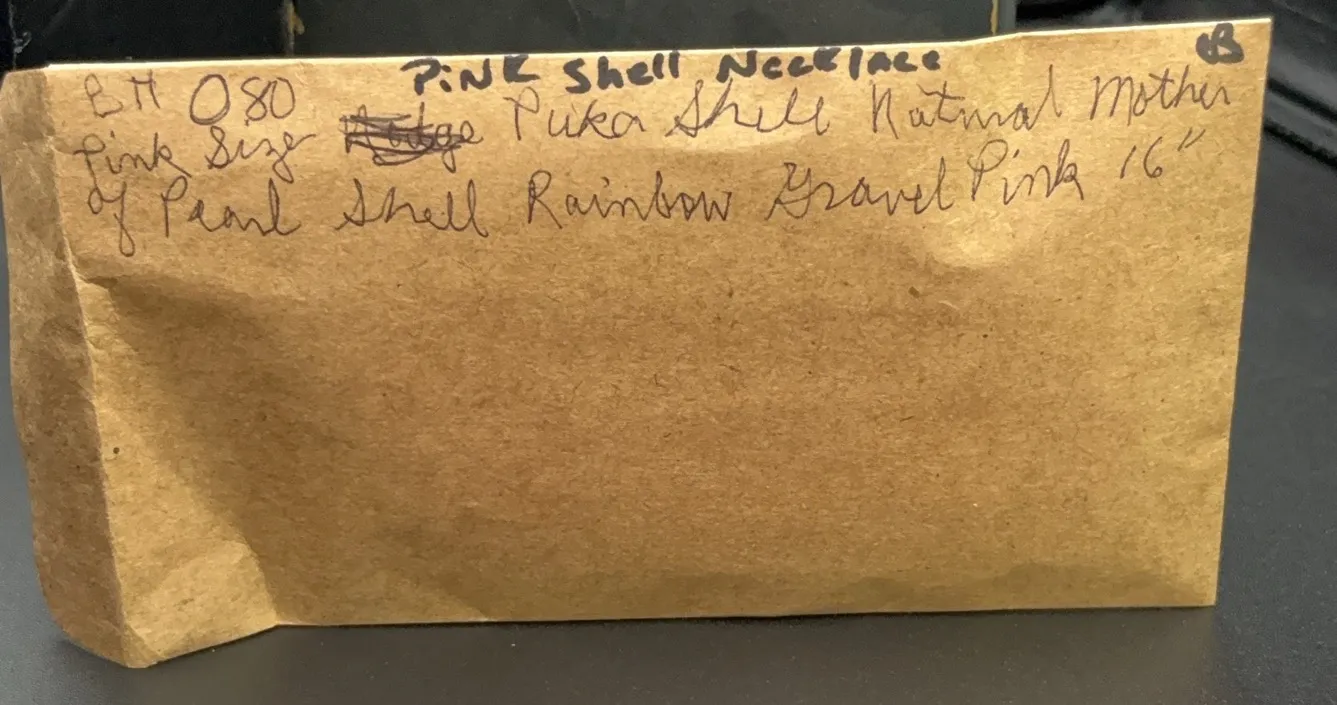 PiNK Shell Necklace
B
BM 080 Puka Shell Natural Mother
Pink Size
of Pearl Shell Rainbow Gravel Pink 16"